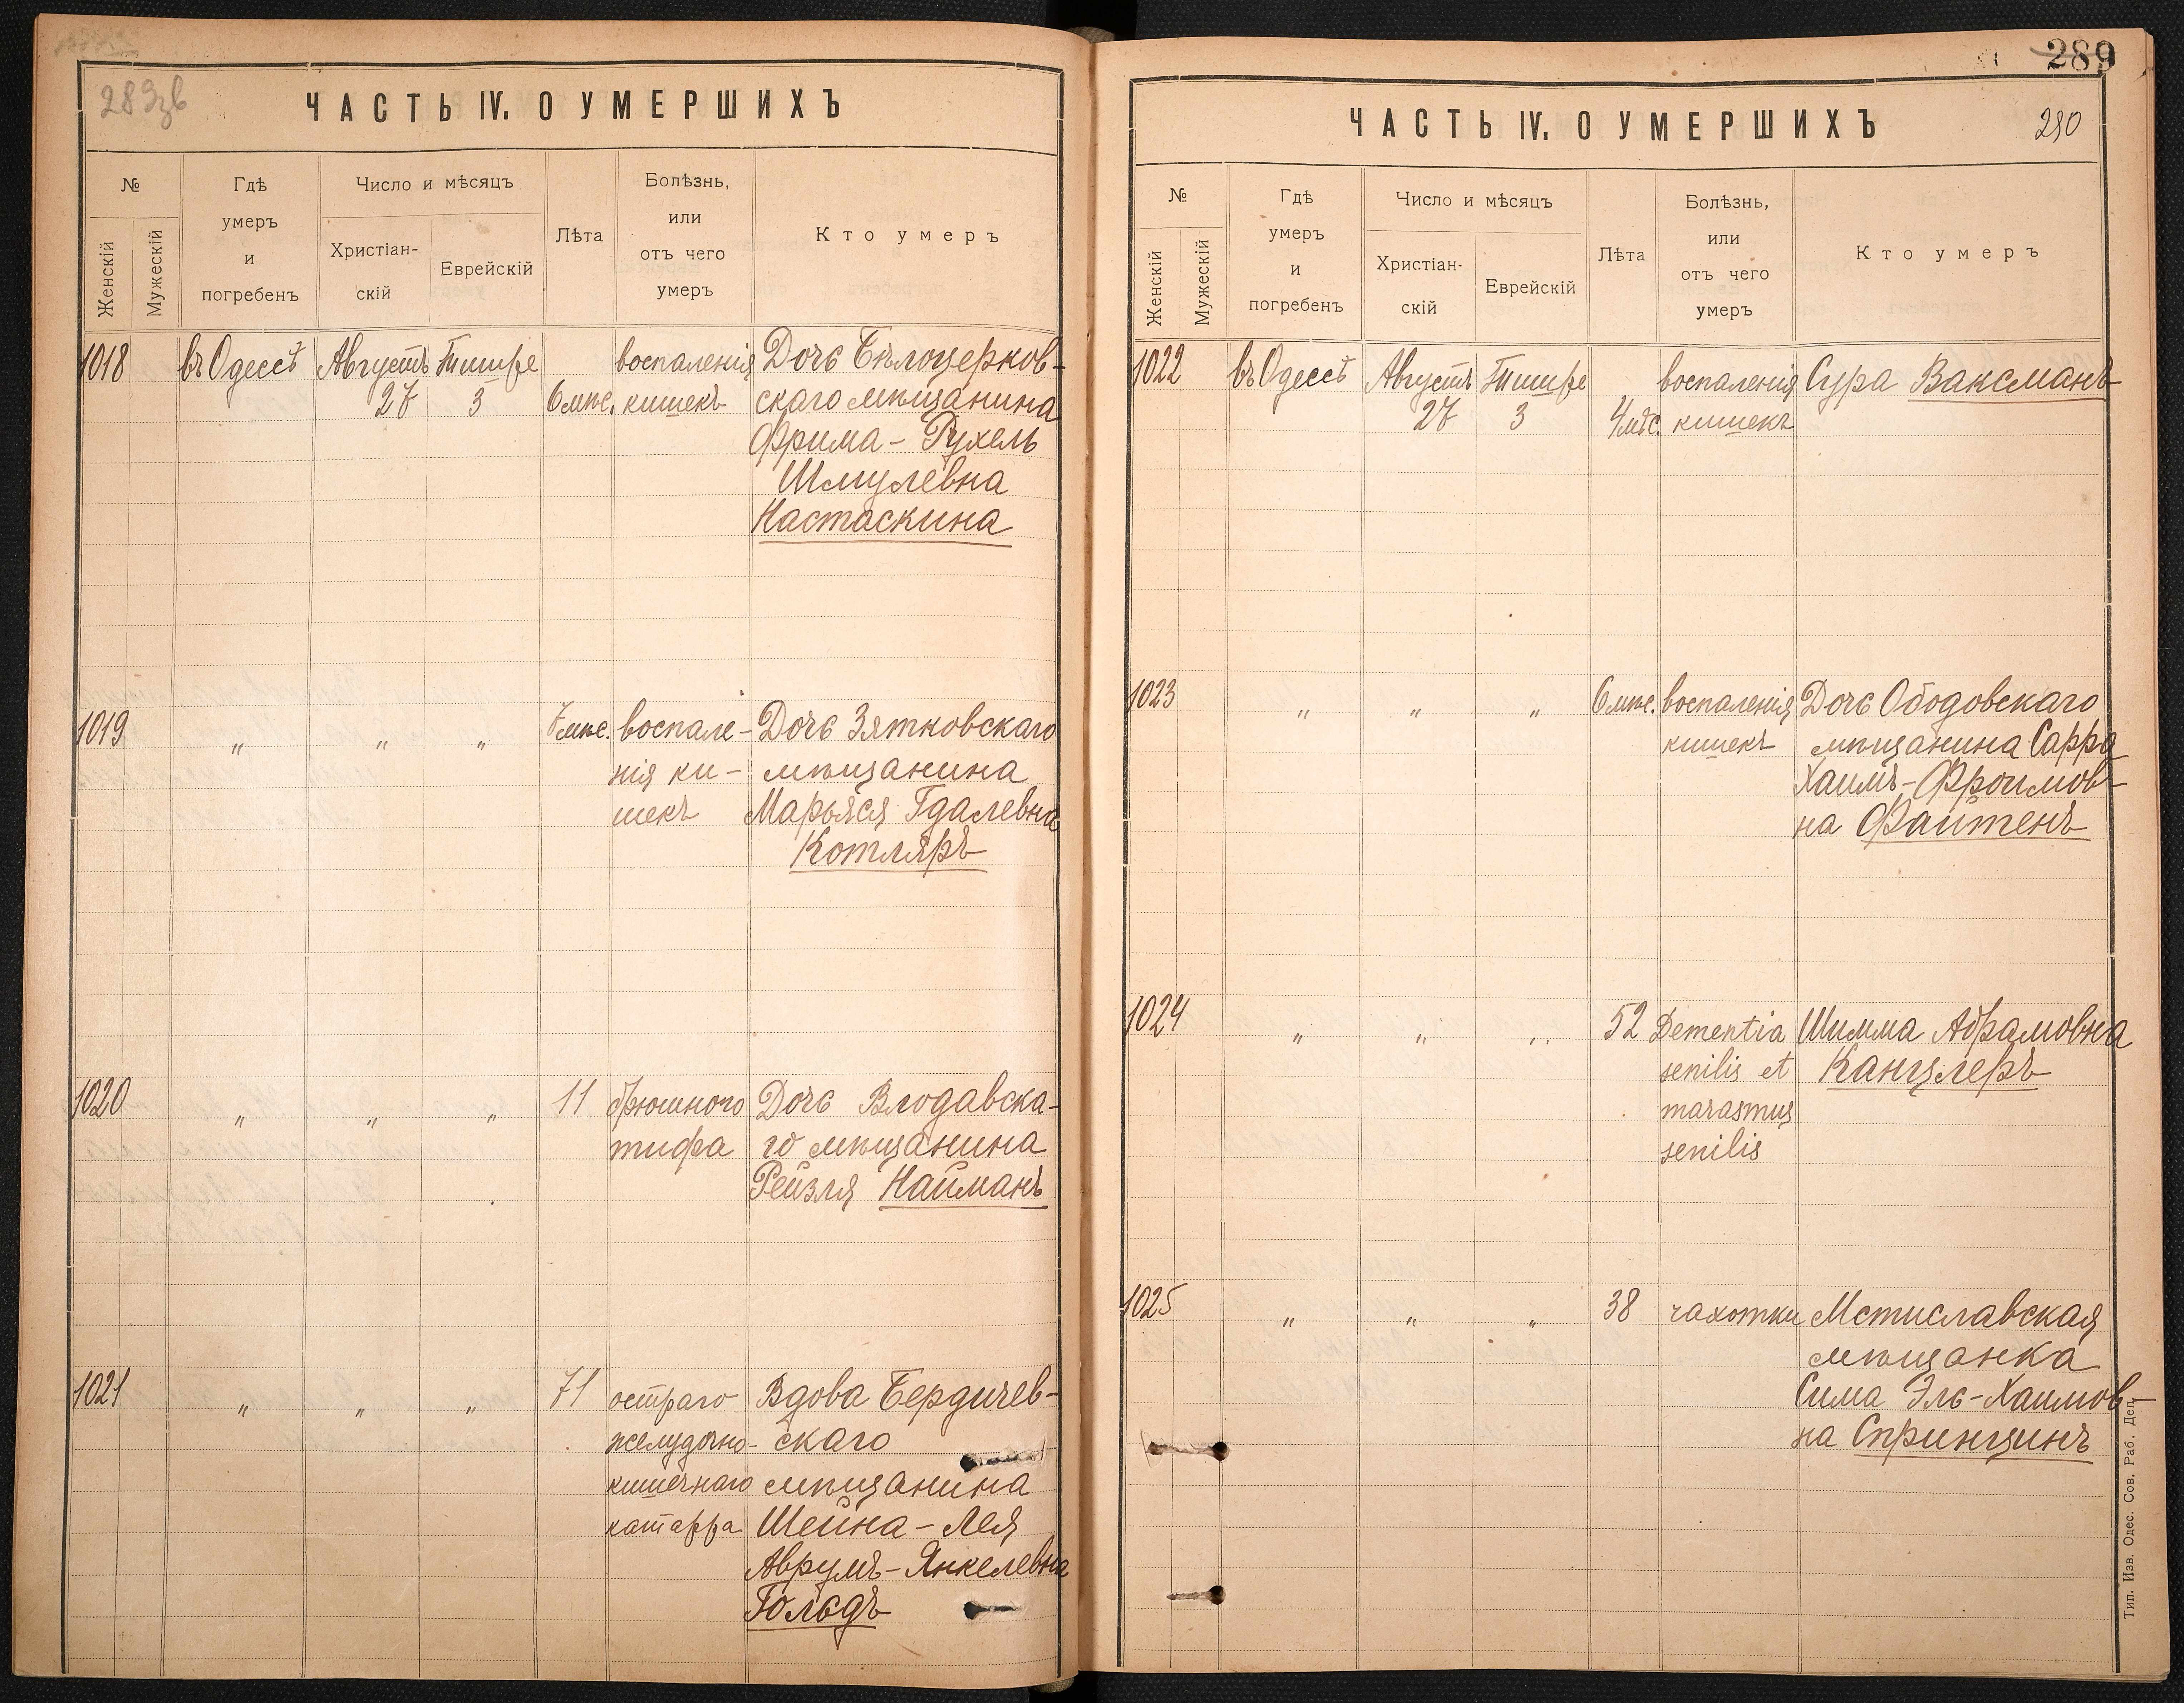 289зв
ЧАСТЬ IV. О УМЕРШИХЪ
№
Женскій
Мужескій
Гдѣ
умеръ
и
погребенъ
Число и мѣсяцъ
Христіан-
скій
Еврейскій
Лѣта
Болѣзнь,
или
отъ чего
умеръ
Кто умеръ
1018 въ Одессѣ Августъ Тишре воспаленія Дочь Бѣлоцерков-
27 3 6 мѣс. кишекъ скаго мѣщанина
Фрима-Рухель
Шмулевна
Настаскина
1019 „ „ „ 7 мѣс. воспале- Дочь Зятковскаго
нія ки- мѣщанина
шекъ Марьяся Гдалевна
Котляръ
1020 „ „ „ 11 брюшного Дочь Влодавска-
тифа го мѣщанина
Рейзля Найманъ
1021 „ „ „ 71 остраго Вдова Бердичев-
желудочно- скаго
кишечнаго мѣщанина
катарра Шейна-Лея
Аврумъ-Янкелевна
Гольдъ
289
ЧАСТЬ IV. О УМЕРШИХЪ
290
№
Женскій
Мужескій
Гдѣ
умеръ
и
погребенъ
Число и мѣсяцъ
Христіан-
скій
Еврейскій
Лѣта
Болѣзнь,
или
отъ чего
умеръ
Кто умеръ
1022 въ Одессѣ Августъ Тишре воспаленія Сура Ваксманъ
27 3 4 мѣс. кишекъ
1023 „ „ „ 6 мѣс. воспаленія Дочь Ободовскаго
кишекъ мѣщанина Сарра
Хаимъ-Фроимов-
на Файтенъ
1024 „ „ „ 52 Dementia Шимма Абрамовна
senilis et Канцлеръ
marasmus
senilis
1025 „ „ „ 38 чахотки Мстиславская
мѣщанка
Сима Эль-Хаимов-
на Спринцинъ
Тип. Изв. Одес. Сов. Раб. Деп.